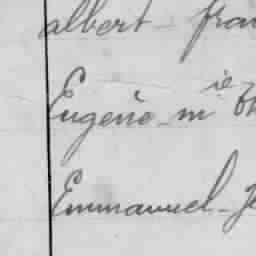 albert - fra
Eugène - m ie
Emmanuel - J